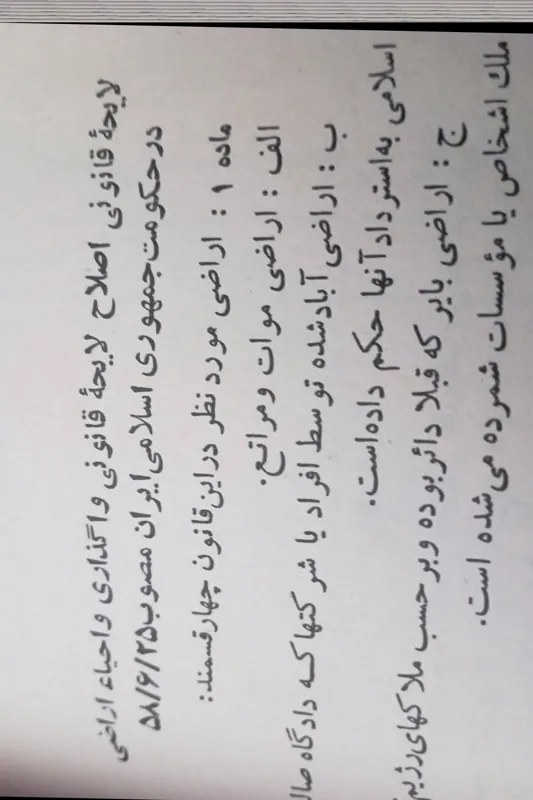 لایحهٔ قانونی اصلاح لایحهٔ قانونی واگذاری و احیاء اراضی
در حکومت جمهوری اسلامی ایران مصوب ۵۸/۶/۲۵
ماده ۱ : اراضی مورد نظر در این قانون چهار قسمند :
الف : اراضی موات و مراتع .
ب : اراضی آباد شده توسط افراد یا شرکتها که دادگاه صال
اسلامی به استرداد آنها حکم داده است .
ج : اراضی بایر که قبلا دائر بوده و بر حسب ملاکهای رژیم
ملک اشخاص یا مؤسسات شمرده می شده است .